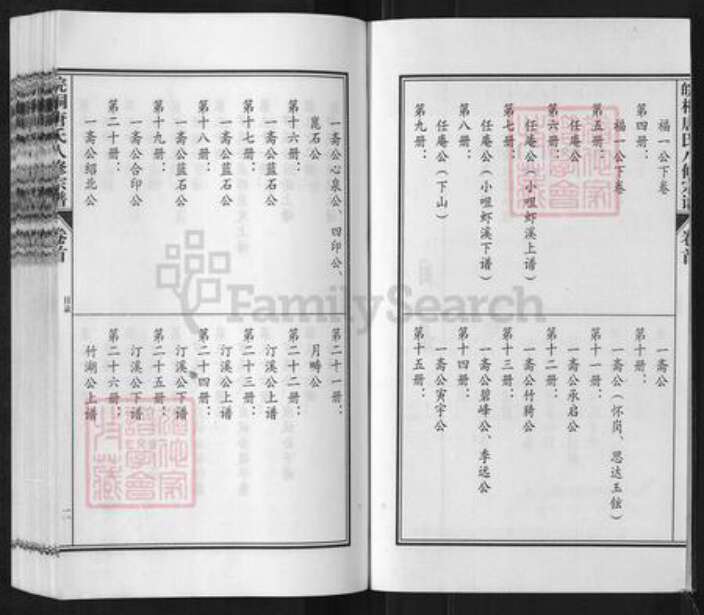 福一公下卷
第四册：
福一公下卷
第五册：
任庵公
第六册：
任庵公（小咀虾溪上谱）
第七册：
任庵公（小咀虾溪下谱）
第八册：
任庵公（下山）
第九册：
一斋公
第十册：
一斋公（怀岗、思达玉铉）
第十一册：
一斋公承启公
第十二册：
一斋公竹骑公
第十三册：
一斋公碧峰公、季远公
第十四册：
一斋公寅宇公
第十五册：
一斋公心泉公、四印公、
崑石公
第十六册：
一斋公蓝石公
第十七册：
一斋公蓝石公
第十八册：
一斋公蓝石公
第十九册：
一斋公合印公
第二十册：
一斋公绍北公
第二十一册：
月畴公
第二十二册：
汀溪公上谱
第二十三册：
汀溪公上谱
第二十四册：
汀溪公下谱
第二十五册：
汀溪公下谱
第二十六册：
竹湖公上谱
氏八修宗谱
卷首
目录
二
FamilySearch